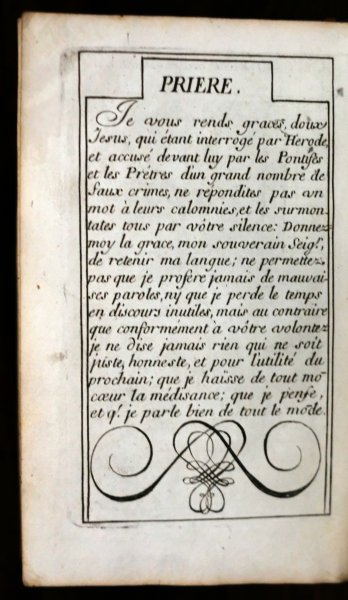 PRIERE.
Je vous rends graces, doux
Jesus, qui étant interrogé par Herode,
et accusé devant luy par les Pontifes
et les Prétres d'un grand nombre de
faux crimes, ne répondites pas vn
mot à leurs calomnies, et les surmon-
tates tous par vótre silence: Donnez
moy la grace, mon souverain Seigr,
de retenir ma langue; ne permettez
pas que je profere jamais de mauvai-
ses paroles, nÿ que je perde le temps
en discours inutiles, mais au contraire
que conformément à vótre volontez
je ne dise jamais rien qui ne soit
juste, honneste, et pour l'utilité du
prochain; que je haïsse de tout mō
cœur la médisance; que je pense,
et q̃. je parle bien de tout le mōde.